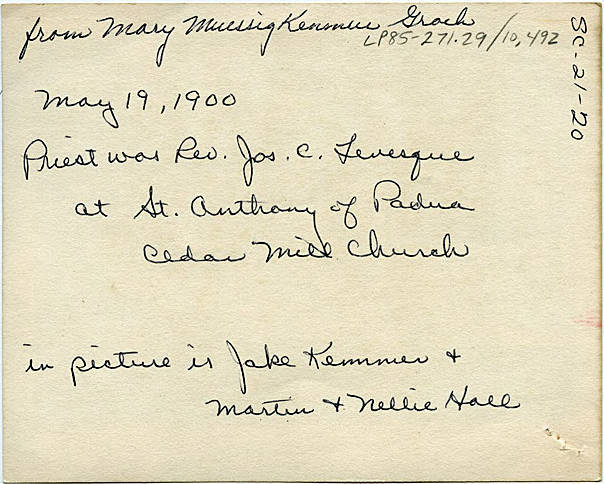 from Mary Muessig Kemmer Groch
LP85-271.29/10,492
8c-21-20
May 19, 1900
Priest was Rev. Jos. C. Levesque
at St. Anthony of Padua
Cedar Mill Church
in picture is Jake Kemmer +
Martin + Nellie Hall